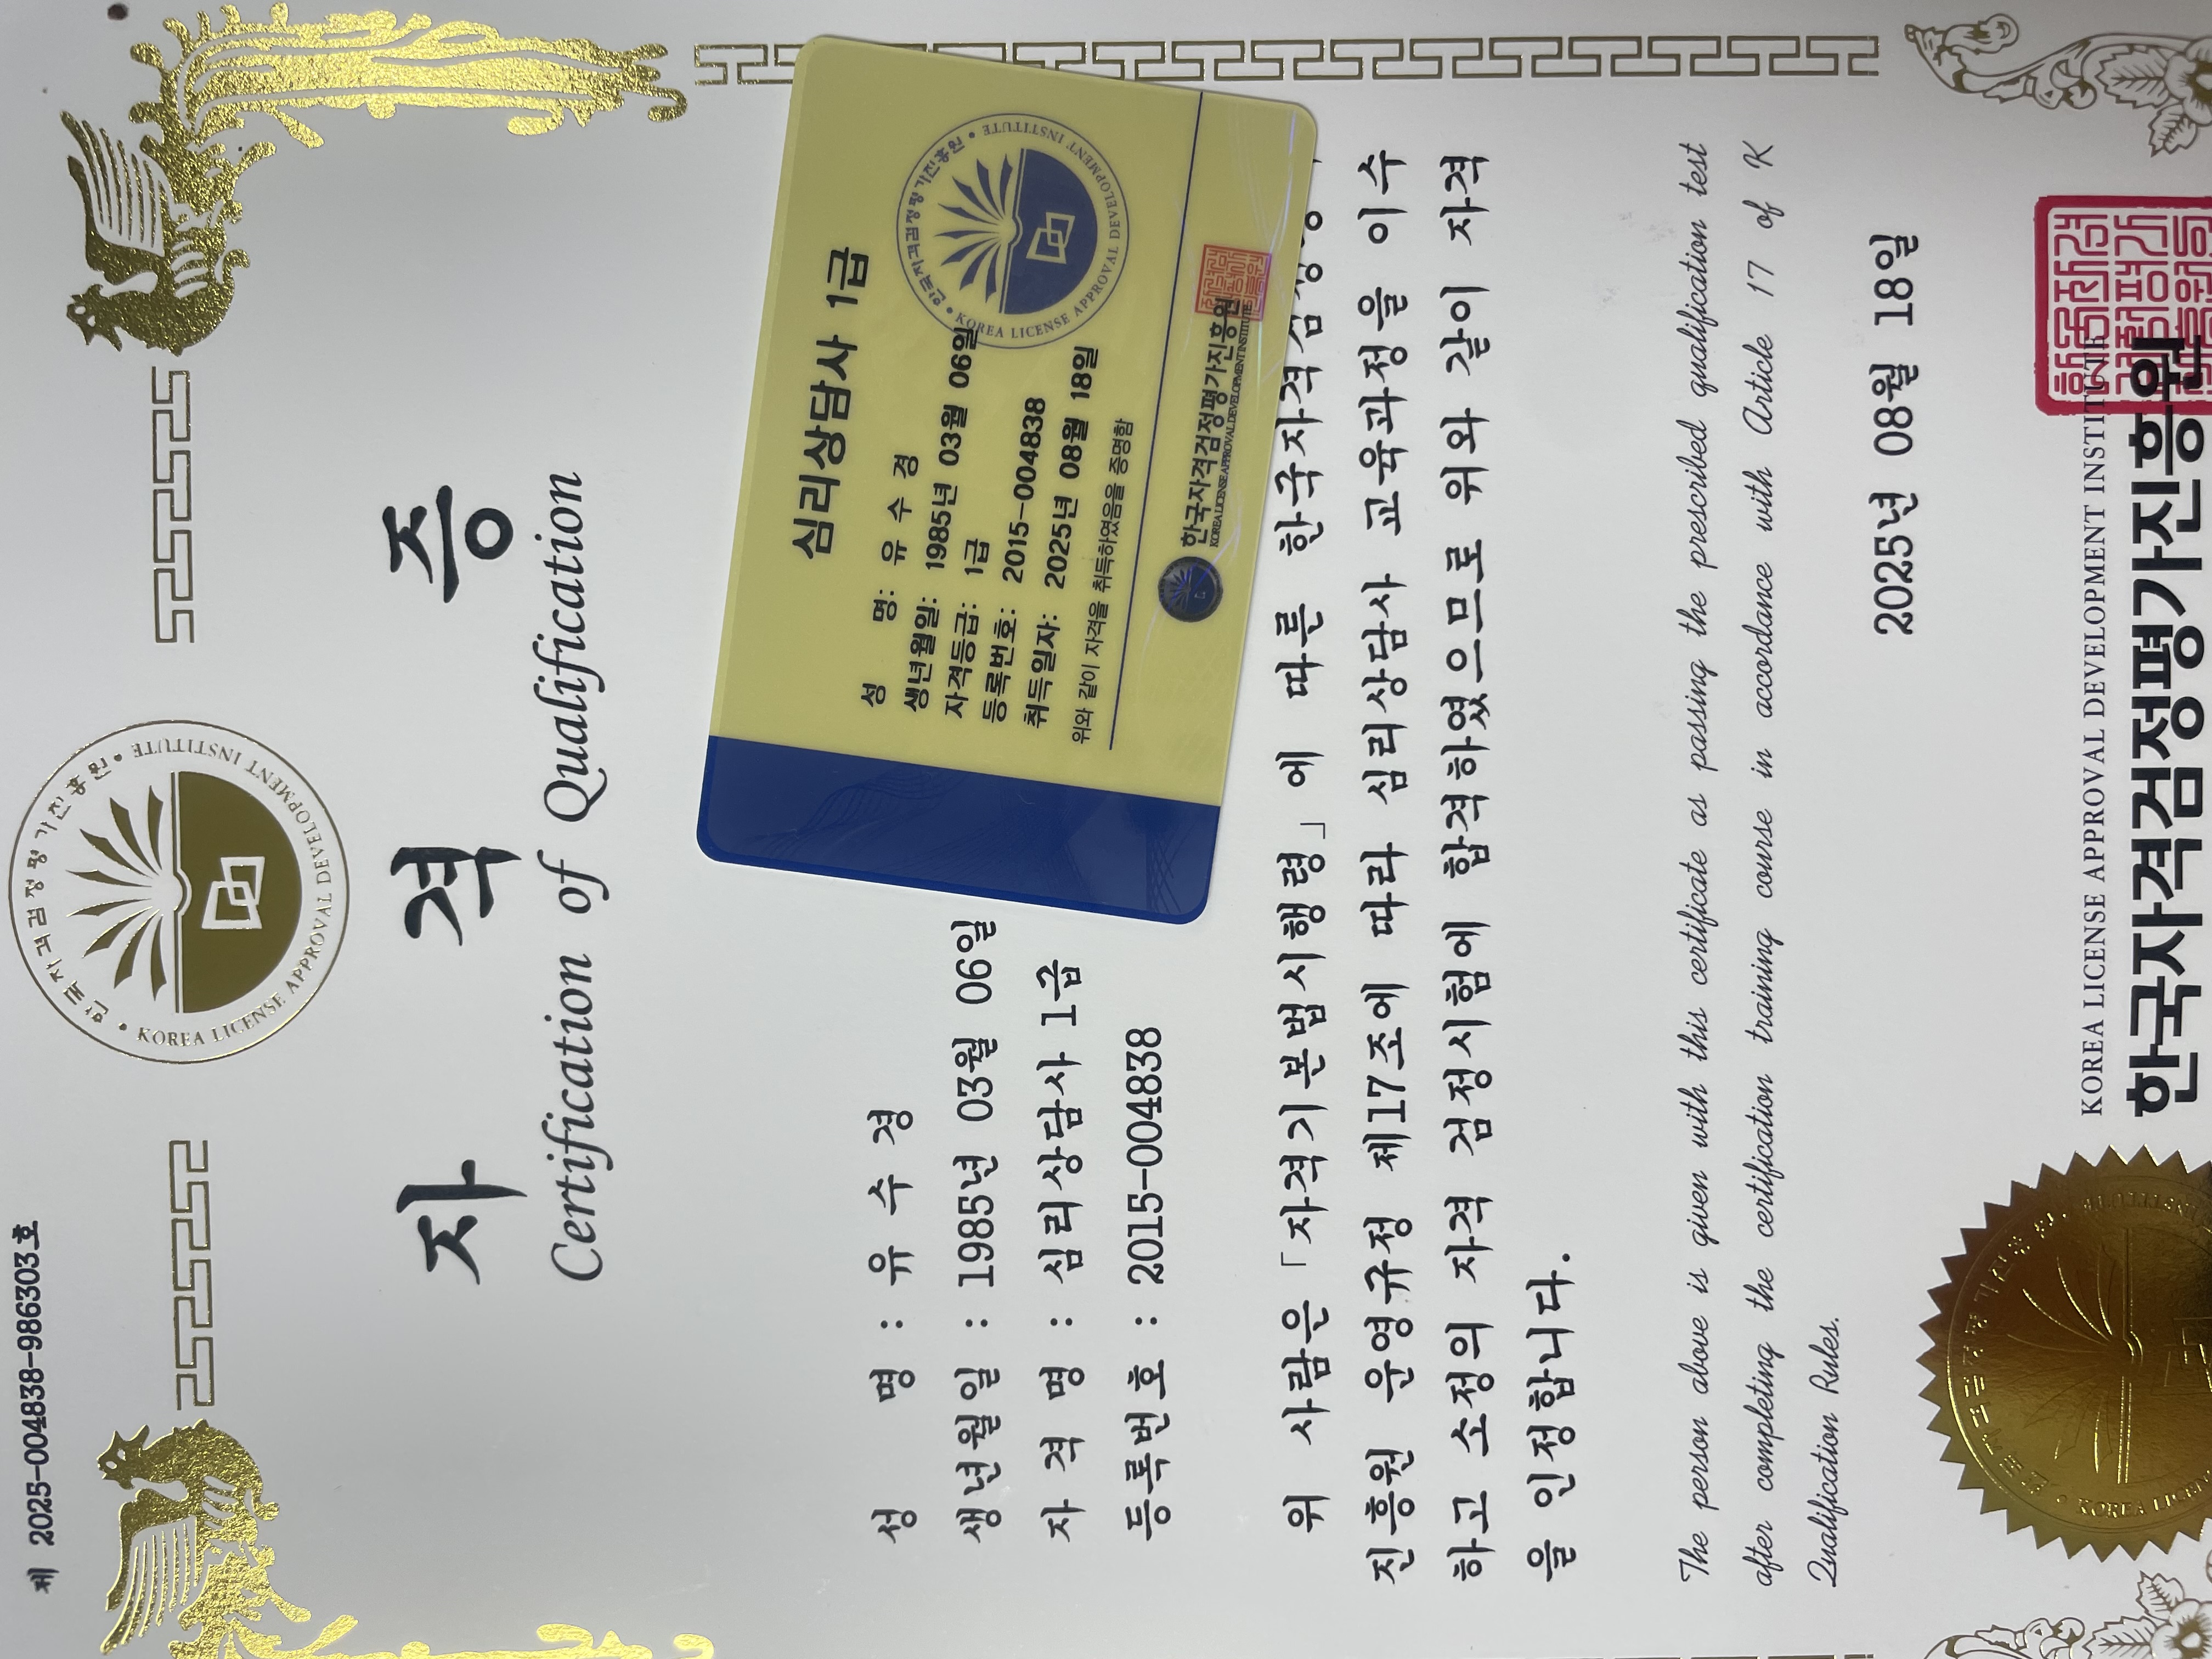 제 2025-004838-986303호
한국자격검정평가진흥원 • KOREA LICENSE APPROVAL DEVELOPMENT INSTITUTE •
자 격 증
Certification of Qualification
성 명 : 유 수 경
생년월일 : 1985년 03월 06일
자 격 명 : 심리상담사 1급
등록번호 : 2015-004838
심리상담사 1급
성 명: 유 수 경
생년월일: 1985년 03월 06일
자격등급: 1급
등록번호: 2015-004838
취득일자: 2025년 08월 18일
위와 같이 자격을 취득하였음을 증명함
한국자격검정평가진흥원 • KOREA LICENSE APPROVAL DEVELOPMENT INSTITUTE •
한국자격검정평가진흥원
KOREA LICENSE APPROVAL DEVELOPMENT INSTITUTE
위 사람은 「자격기본법시행령」에 따른 한국자격검정
진흥원 운영규정 제17조에 따라 심리상담사 교육과정을 이수
하고 소정의 자격 검정시험에 합격하였으므로 위와 같이 자격
을 인정합니다.
The person above is given with this certificate as passing the prescribed qualification test
after completing the certification training course in accordance with Article 17 of K
Qualification Rules.
2025년 08월 18일
KOREA LICENSE APPROVAL DEVELOPMENT INSTITUTE
한국자격검정평가진흥원